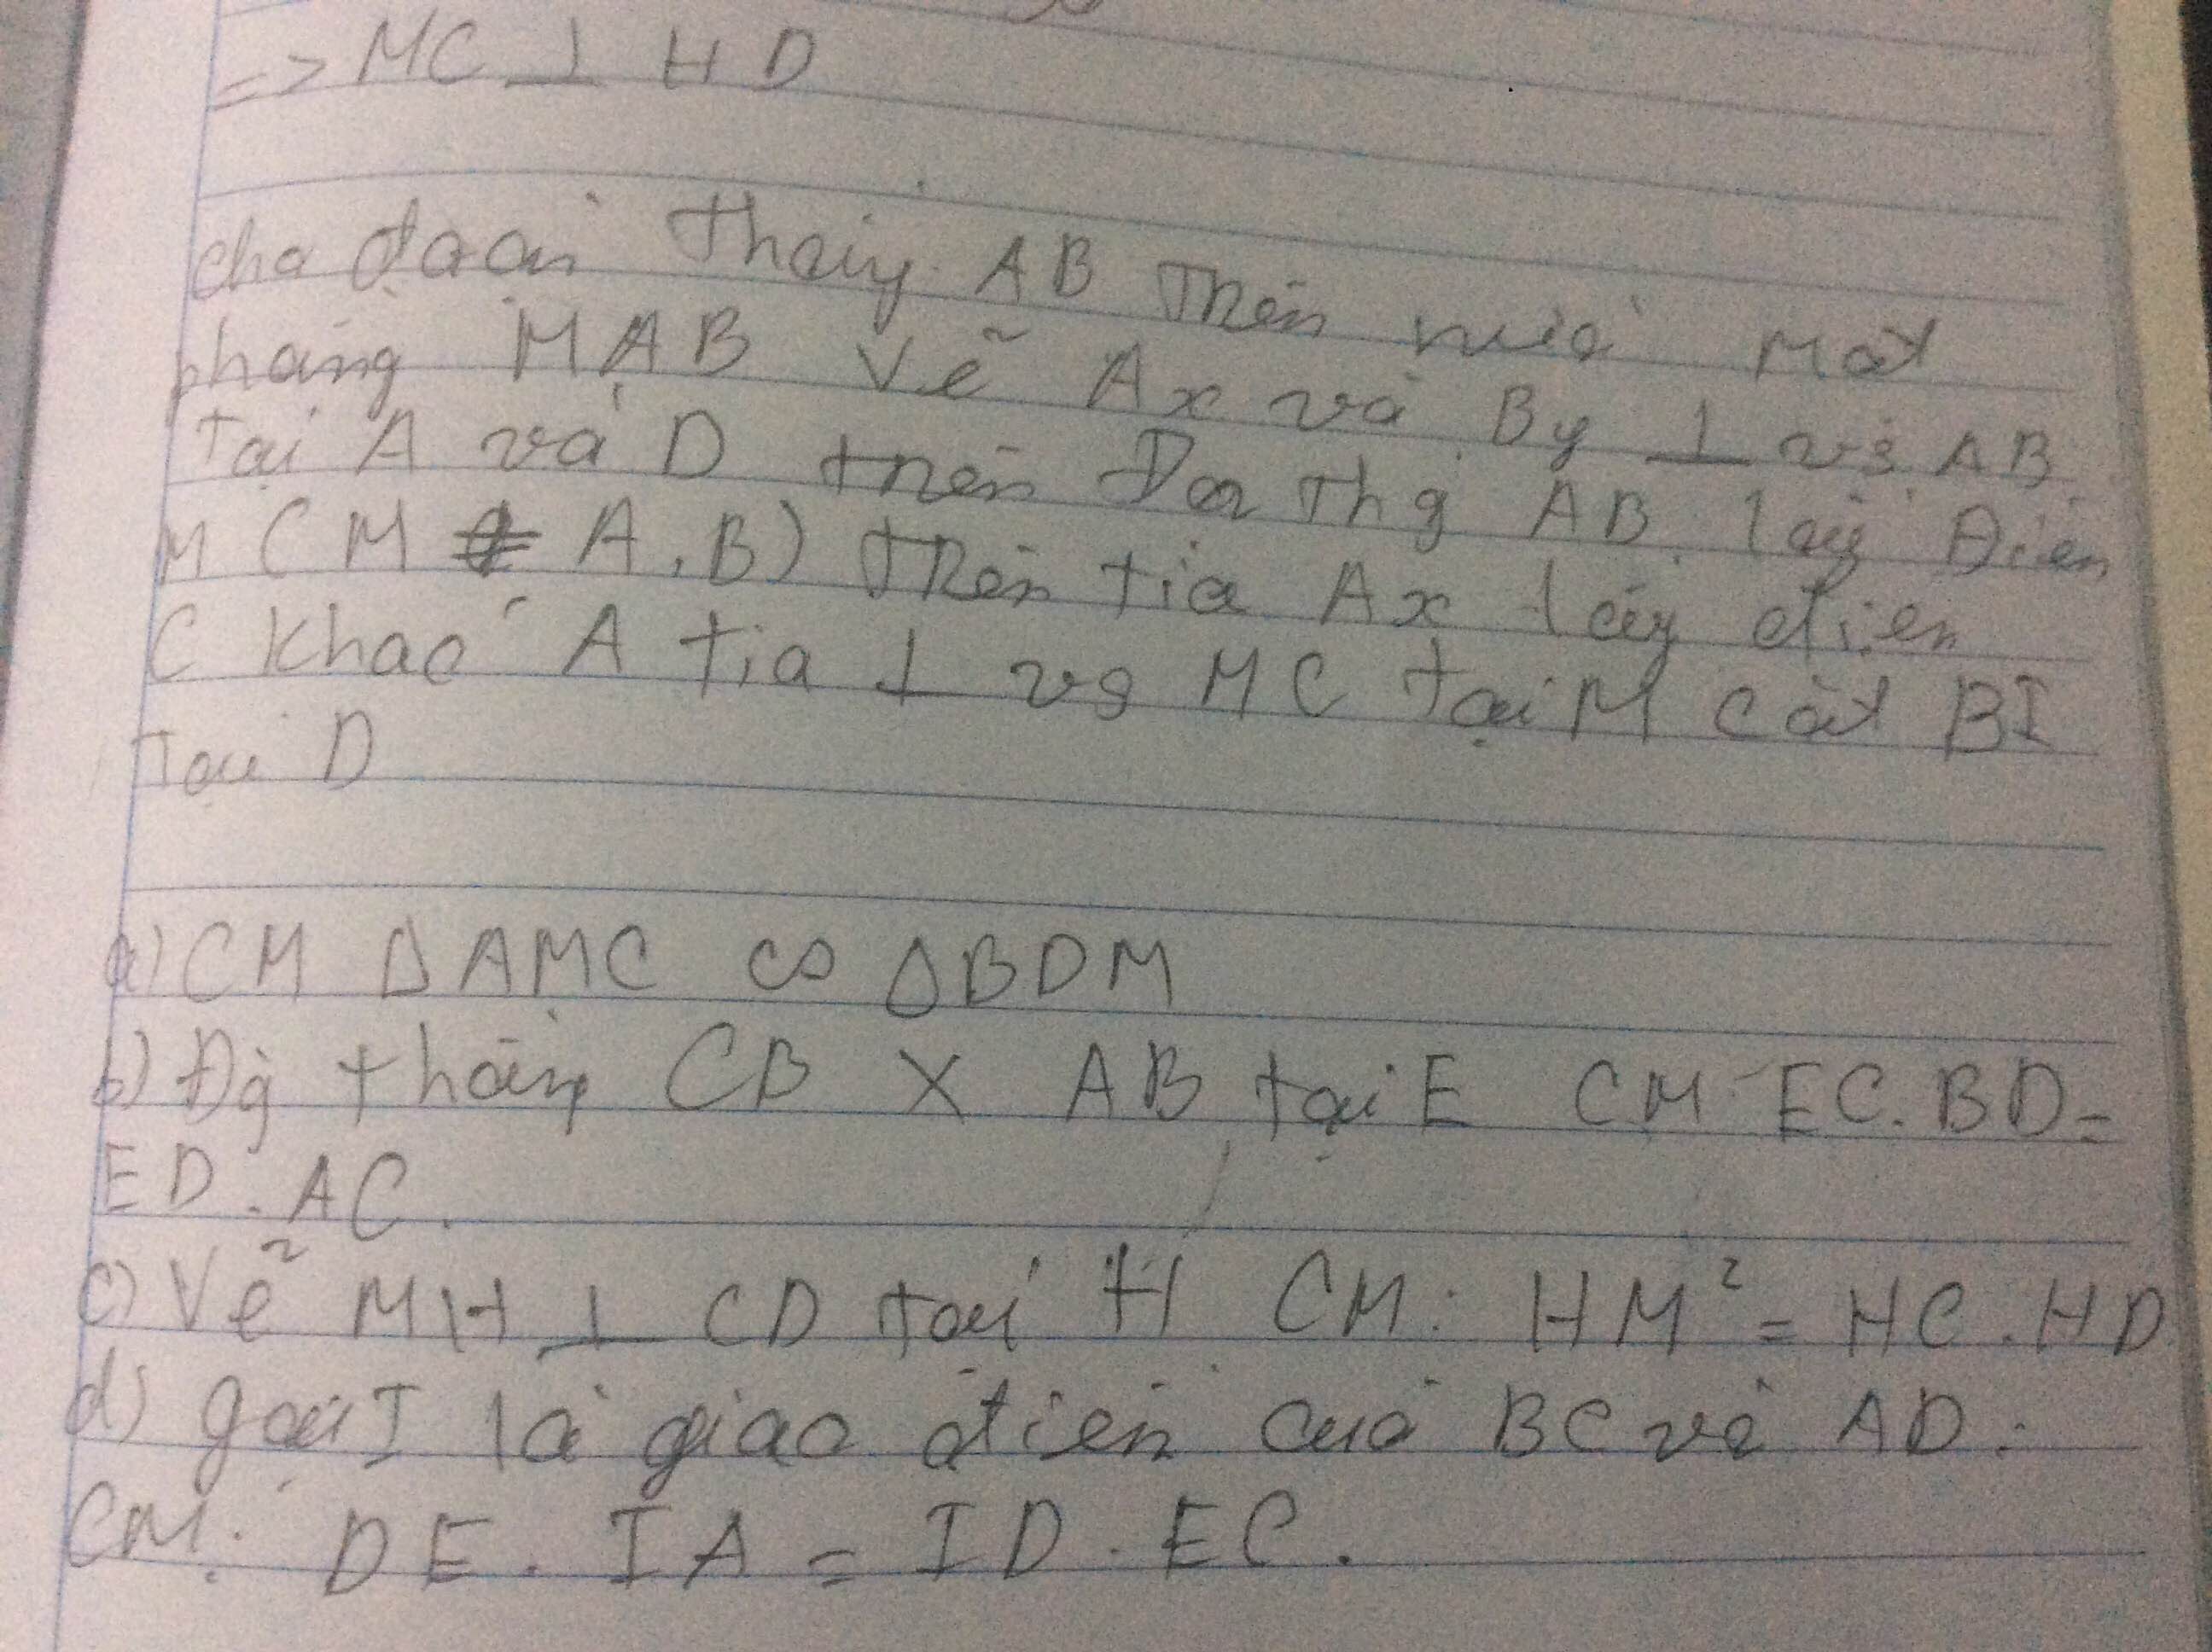 => MC ⊥ HD
cho đoạn thẳng AB Trên nửa Mặt
phẳng MAB Vẽ Ax và By ⊥ vg AB
Tại A và D trên Đoạ Thg AB lấy Điểm
M (M ≠ A, B) Trên tia Ax lấy điểm
C khác A tia ⊥ vg MC tại M cắt BI
Tại D
a) CM Δ AMC ∽ ΔBDM
b) Đg thẳng CB X AB tại E CM EC. BD=
ED. AC.
c) Vẽ MH ⊥ CD tại H CM: HM² = HC. HD
d) gọi I là giao điểm của BC và AD.
CM: DE. IA = ID. EC.